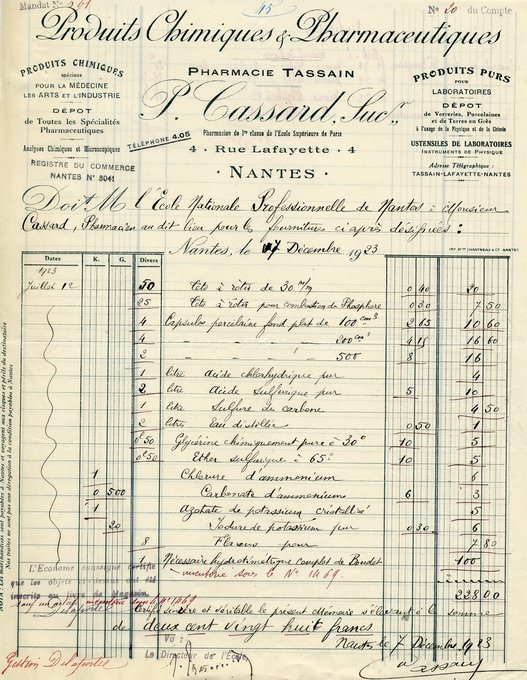 Mandat N° 261
15
N° 20 du Compte
Produits Chimiques & Pharmaceutiques
PRODUITS CHIMIQUES
spéciaux
POUR LA MÉDECINE
LES ARTS ET L'INDUSTRIE
DÉPÔT
de Toutes les Spécialités
Pharmaceutiques
Analyses Chimiques et Microscopiques
REGISTRE DU COMMERCE
NANTES N° 3041
PHARMACIE TASSAIN
P. Cassard, Sucr
TÉLÉPHONE 4.05
Pharmacien de 1re classe de l'Ecole Supérieure de Paris
4 - Rue Lafayette - 4
NANTES
PRODUITS PURS
POUR
LABORATOIRES
DÉPÔT
de Verreries, Porcelaines
et de Terres en Grès
à l'usage de la Physique et de la Chimie
USTENSILES DE LABORATOIRES
INSTRUMENTS DE PHYSIQUE
Adresse Télégraphique :
TASSAIN-LAFAYETTE-NANTES
Doit M l'Ecole Nationale Professionnelle de Nantes à Monsieur
Cassard, Pharmacien au dit lieu pour les fournitures ci après désignées :
Nantes, le 7 Décembre 1923
Dates K. G. Divers
1923
Juillet 12 50 Têts à rôtir de 30 m/m 0 40 20
25 Têts à rôtir pour combustion de Phosphore 0 30 7 50
4 Capsules porcelaine fond plat de 100 cm3 2 65 10 60
4 - - - - 200 cm3 4 15 16 60
2 - - - - 500 8 16
1 litre Acide chlorhydrique pur 4
2 litre Acide Sulfurique pur 5 10
1 litre Sulfure de Carbone 4 50
2 litres Eau distillée 0 50 1
0l 50 Glycérine chimiquement pure à 30° 10 5
0l 50 Ether sulfurique à 65° 10 5
1 Chlorure d'ammonium 6
0 500 Carbonate d'ammonium 6 3
1 Azotate de potassium cristallisé 5
20 Iodure de potassium pur 0 30 6
8 pour 7 80
1 Nécessaire hydrotimétrique complet de Boudet 100
inventorié sous le N° 1469
228 00
L'Econome soussigné certifie
que les objets ci-dessus ont été
inscrits au livre de Magasin
Certifié sincère et véritable le présent Mémoire s'élevant à la somme
de deux cent vingt huit francs
Nantes le 7 Décembre 1923
VU :
Le Directeur de l'Ecole,
Cassard
NOTA : Les marchandises sont payables à Nantes et voyagent aux risques et périls du destinataire
Nos traites ne sont pas une dérogation à la condition payables à Nantes